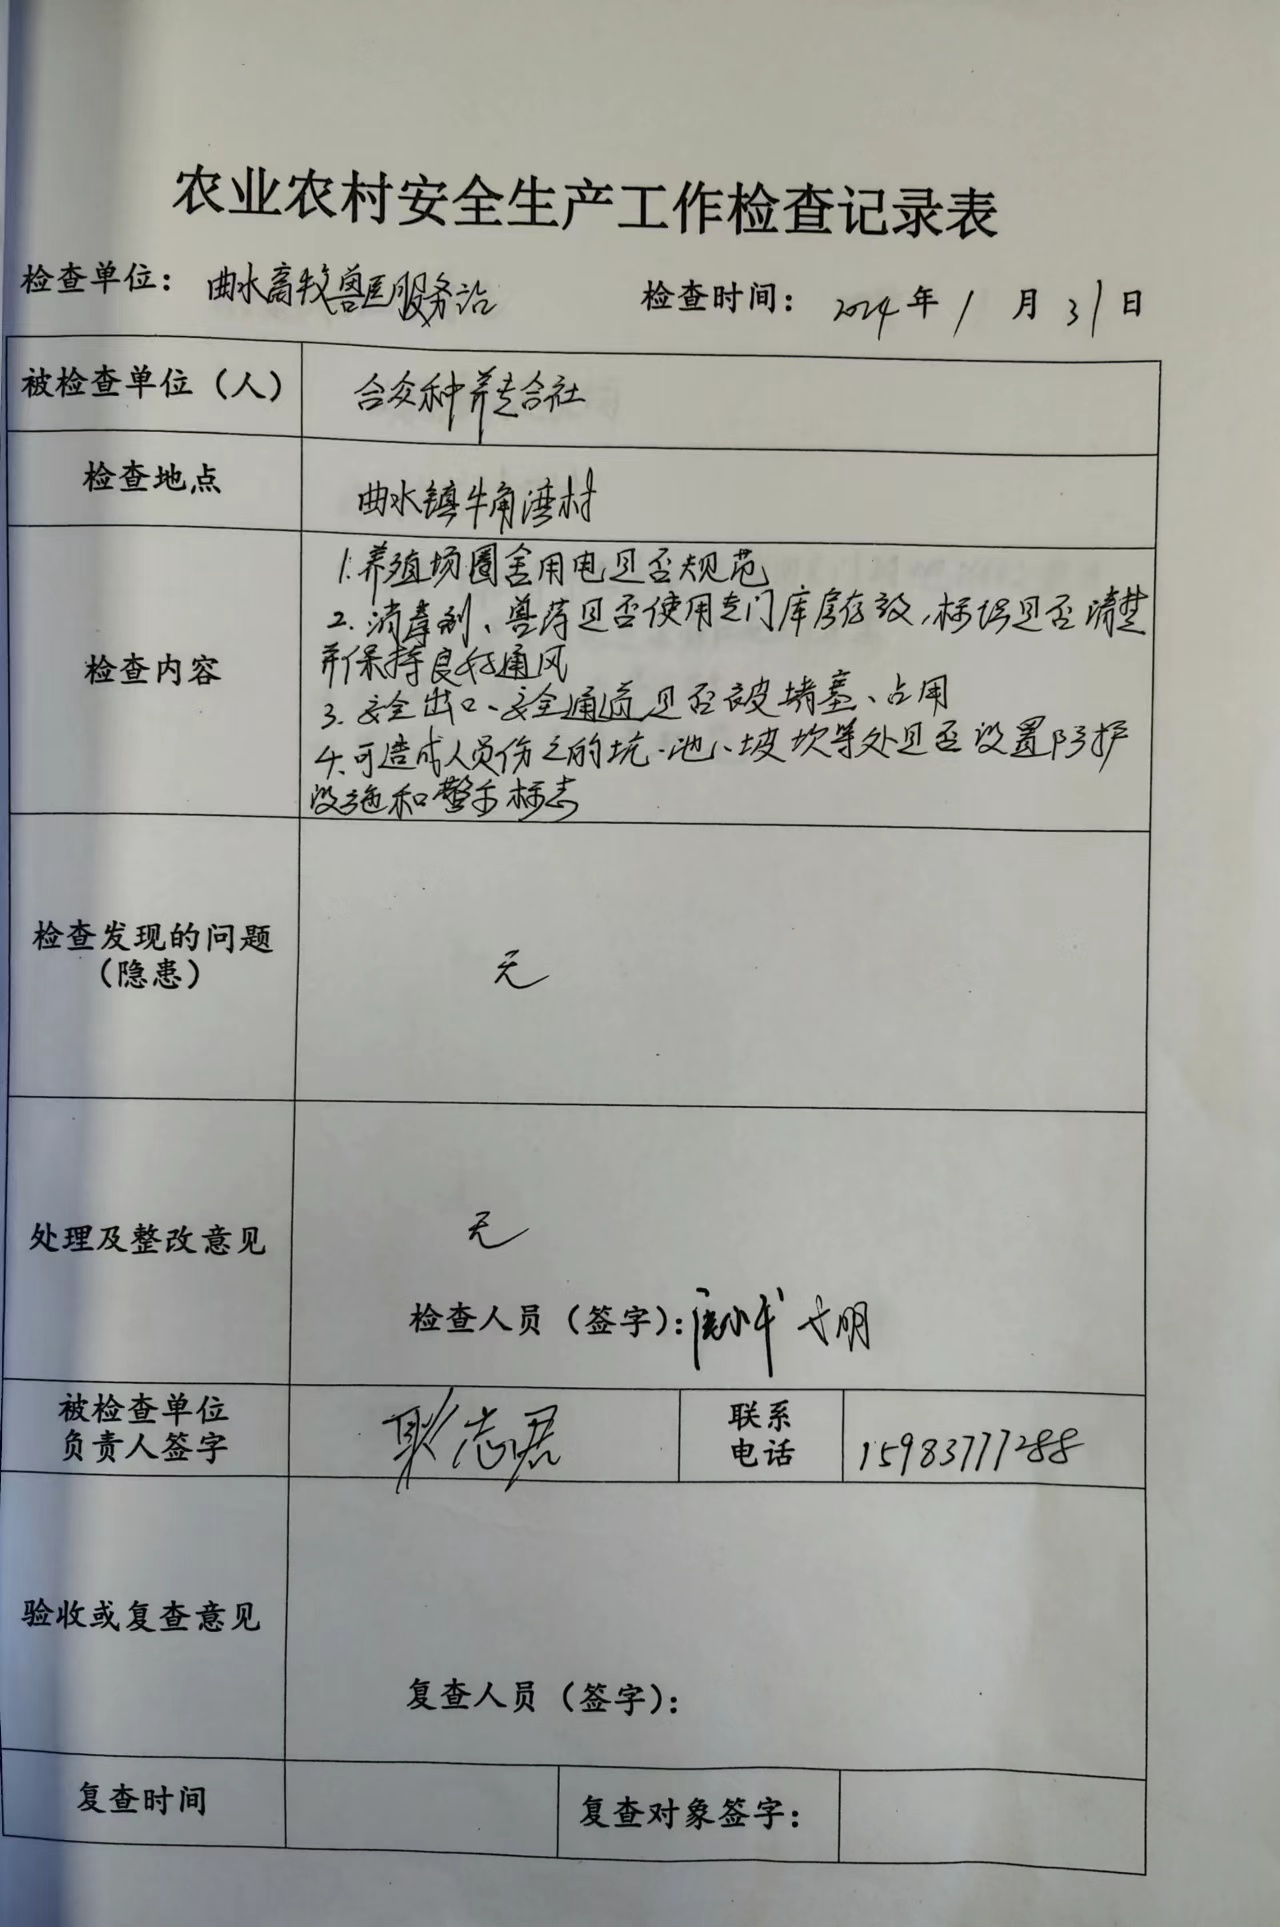 农业农村安全生产工作检查记录表
检查单位：曲水畜牧兽医服务站 检查时间：2024年1月31日
被检查单位（人） 合众种养专合社
检查地点 曲水镇牛角湾村
检查内容
1.养殖场圈舍用电是否规范
2.消毒剂、兽药是否使用专门库房存放,标识是否清楚
并保持良好通风
3.安全出口、安全通道是否被堵塞、占用
4.可造成人员伤亡的坑、池、坡坎等处是否设置防护
设施和警示标志
检查发现的问题
（隐患）
无
处理及整改意见
无
检查人员（签字）：
被检查单位
负责人签字
耿志君
联系
电话
15983777288
验收或复查意见
复查人员（签字）：
复查时间 复查对象签字：